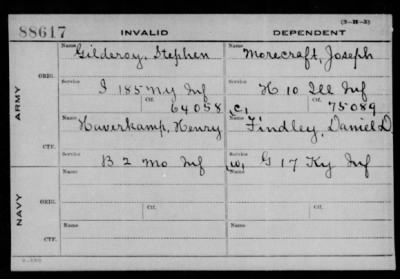 (3-H-3)
88617 INVALID DEPENDENT
Name Gilderoy, Stephen Name Morecraft, Joseph
ORIG. Service Service
I 185 NY Inf H 10 Ill Inf
Ctf. 64058 C, Ctf. 75089
ARMY
Name Haverkamp, Henry Name Findley, Daniel D
CTF. Service Service
B 2 Mo Inf W, G 17 Ky Inf
Name Name
ORIG. Ctf. Ctf.
NAVY
Name Name
CTF.